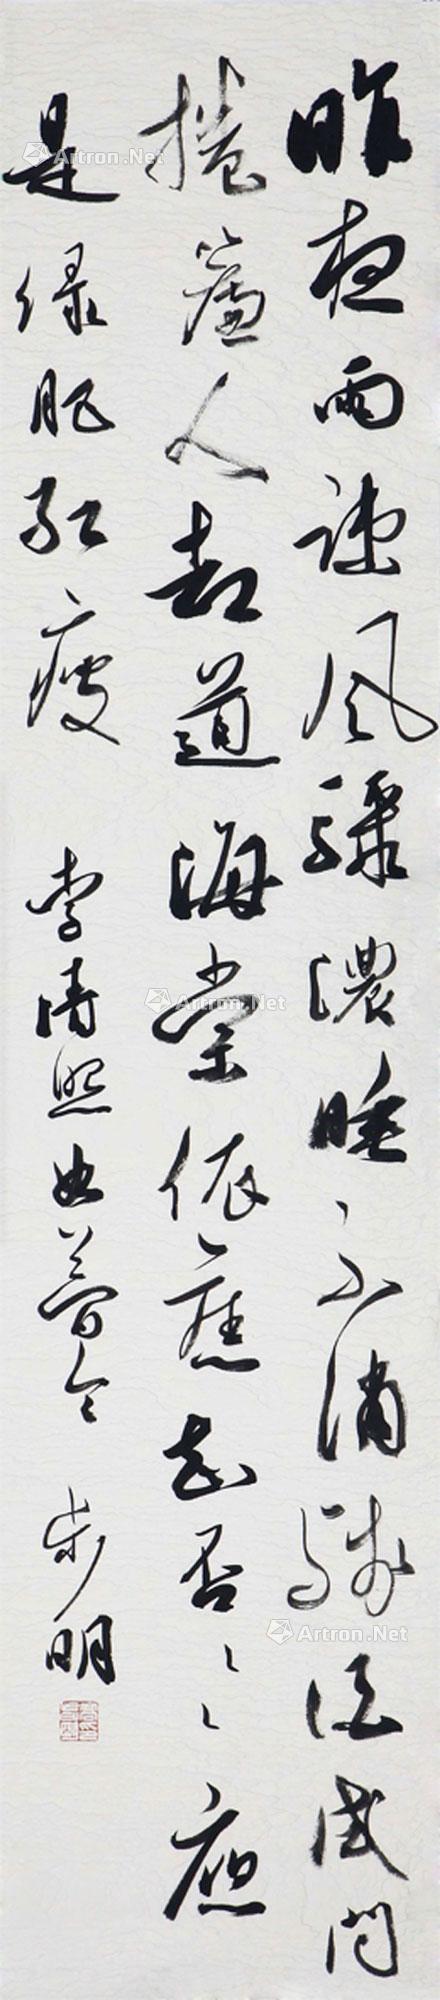 昨夜雨疏风骤浓睡不消残酒试问
捲帘人却道海棠依旧知否〻〻应
是绿肥红瘦 李清照如梦令 步明
Artron.Net
Artron.Net
Artron.Net